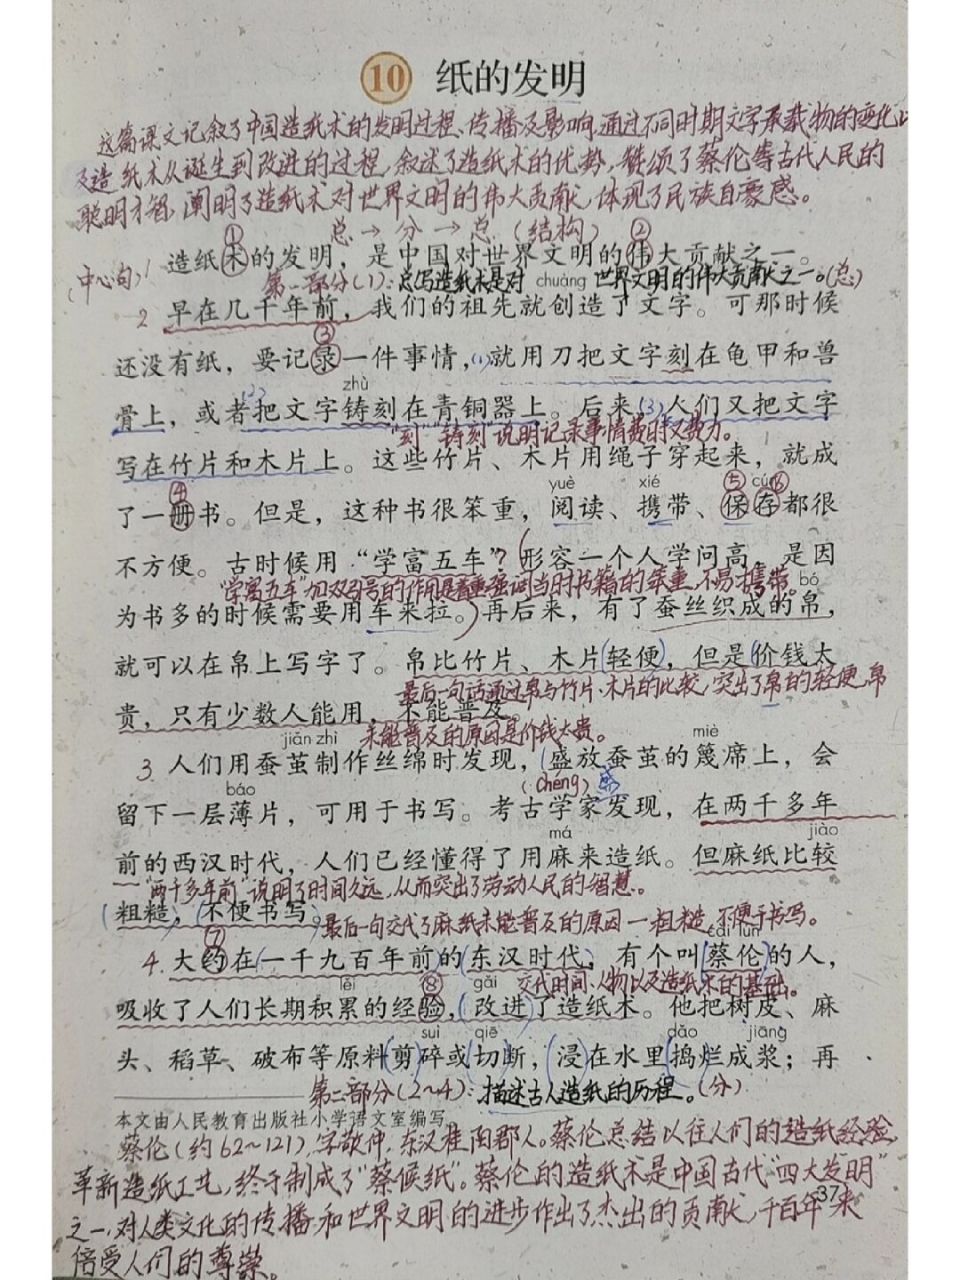 10 纸的发明
这篇课文记叙了中国造纸术的发明过程、传播及影响,通过不同时期文字承载物的变化以
及造纸术从诞生到改进的过程,叙述了造纸术的优势,赞颂了蔡伦等古代人民的
聪明才智,阐明了造纸术对世界文明的伟大贡献,体现了民族自豪感。
总→分→总(结构)
① ②
(中心句) 1 造纸术的发明,是中国对世界文明的伟大贡献之一。
第一部分(1):总写造纸术是对世界文明的伟大贡献之一。(总)
chuàng
2 早在几千年前,我们的祖先就创造了文字。可那时候
③
还没有纸,要记录一件事情,(1)就用刀把文字刻在龟甲和兽
zhù
骨上,或者(2)把文字铸刻在青铜器上。后来,(3)人们又把文字
"刻""铸刻"说明记录事情费时又费力。
写在竹片和木片上。这些竹片、木片用绳子穿起来,就成
④ yuè xié ⑤ cún ⑥
了一册书。但是,这种书很笨重,阅读、携带、保存都很
不方便。古时候用“学富五车”?(形容一个人学问高,是因
"学富五车"加双引号的作用是着重强调当时书籍的笨重,不易携带。
bó
为书多的时候需要用车来拉。)再后来,有了蚕丝织成的帛,
就可以在帛上写字了。帛比竹片、木片(轻便),但是(价钱太
最后一句话通过帛与竹片、木片的比较,突出了帛的轻便,帛
贵,只有少数人能用,不能普及。
未能普及的原因是价钱太贵。
jiǎn zhì miè
3. 人们用蚕茧制作丝绵时发现,(盛放蚕茧的篾席上,会
(chéng)盛
báo
留下一层薄片,可用于书写。考古学家发现,在两千多年
má jiào
前的西汉时代,人们已经懂得了用麻来造纸。但麻纸比较
"两千多年前"说明了时间久远,从而突出了劳动人民的智慧。
(粗糙,(不便书写。
最后一句交代了麻纸未能普及的原因——粗糙,不便于书写。
⑦ cài lún
4. 大约在(一千九百年前)的(东汉时代,有个叫(蔡伦)的人,
交代时间、人物以及造纸术的基础。
lěi ⑧ gǎi
吸收了人们长期积累的经验,(改进)了造纸术。他把树皮、麻
suì qiē dǎo jiāng
头、稻草、破布等原料(剪)碎或(切)断,(浸)在水里(捣烂成浆;再
第二部分(2~4):描述古人造纸的历程。(分)
本文由人民教育出版社小学语文室编写。
蔡伦(约62~121),字敬仲,东汉桂阳郡人。蔡伦总结以往人们的造纸经验,
革新造纸工艺,终于制成了"蔡侯纸"。蔡伦的造纸术是中国古代"四大发明"
37
之一,对人类文化的传播和世界文明的进步作出了杰出的贡献,千百年来
倍受人们的尊崇。